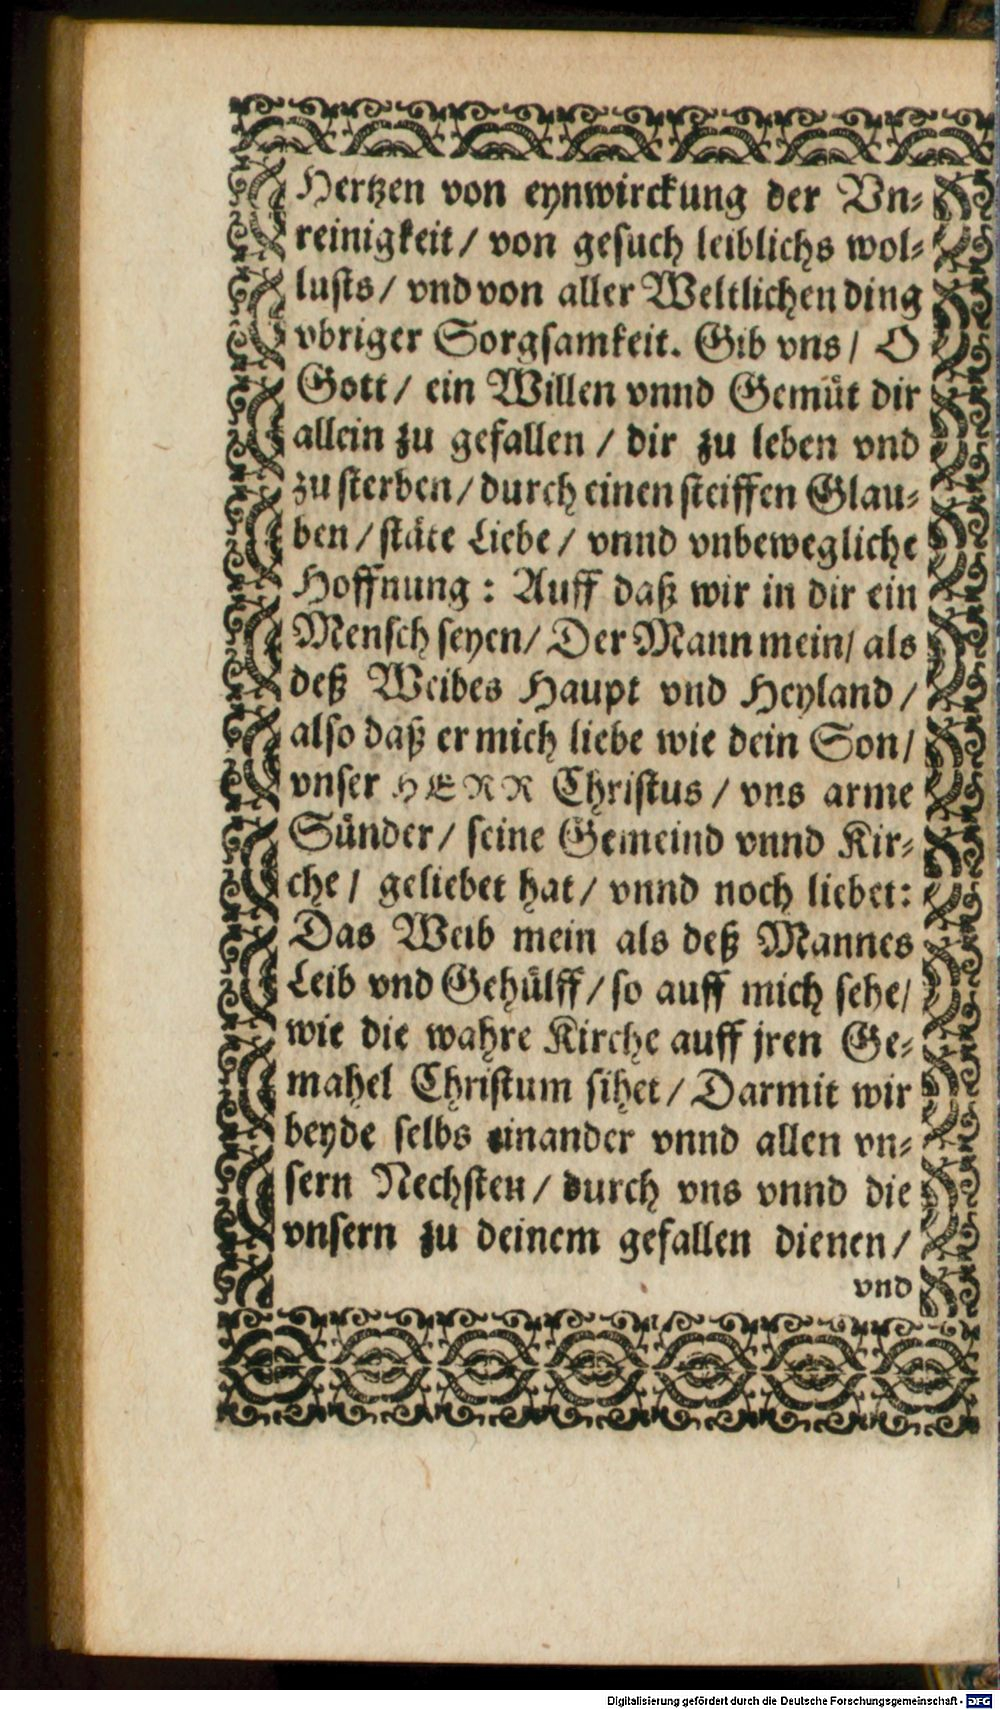 Hertzen von eynwirckung der Vn⸗
reinigkeit / von gesuch leiblichs wol⸗
lusts / vnd von aller Weltlichen ding
vbriger Sorgsamkeit. Gib vns / O
Gott / ein Willen vnnd Gemüt dir
allein zu gefallen / dir zu leben vnd
zu sterben / durch einen steiffen Glau⸗
ben / stäte Liebe / vnnd vnbewegliche
Hoffnung : Auff daß wir in dir ein
Mensch seyen / Der Mann mein / als
deß Weibes Haupt vnd Heyland /
also daß er mich liebe wie dein Son /
vnser HERR Christus / vns arme
Sünder / seine Gemeind vnnd Kir⸗
che / geliebet hat / vnnd noch liebet:
Das Weib mein als deß Mannes
Leib vnd Gehülff / so auff mich sehe /
wie die wahre Kirche auff jren Ge⸗
mahel Christum sihet / Darmit wir
beyde selbs einander vnnd allen vn⸗
sern Nechsten / durch vns vnnd die
vnsern zu deinem gefallen dienen /
vnd
Digitalisierung gefördert durch die Deutsche Forschungsgemeinschaft - DFG